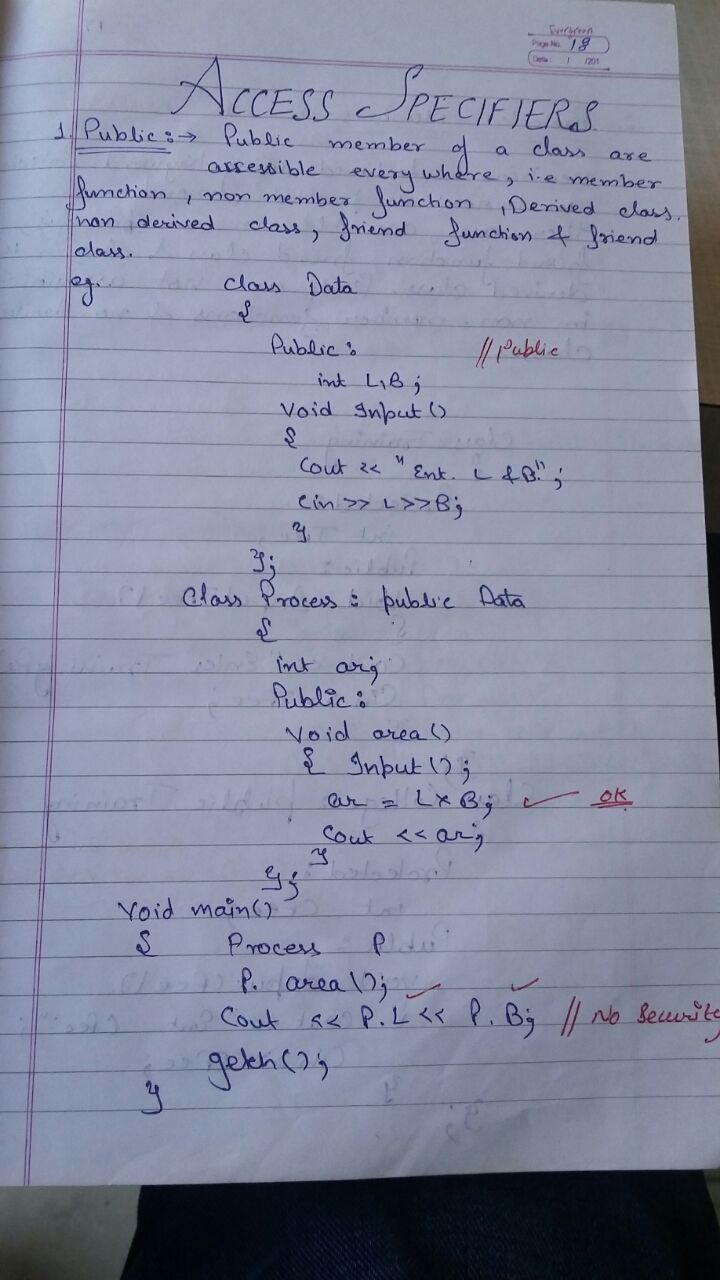 Evergreen
Page No. 18
Date: / /201
ACCESS SPECIFIERS
1. Public :→ Public member of a class are
accessible every where, i.e member
function, non member function, Derived class,
non derived class, friend function & friend
class.
eg. class Data
{
Public: // public
int L,B;
Void Input()
{
Cout << "Ent. L & B";
Cin >> L >> B;
}
};
Class Process : public Data
{
int ar;
Public:
Void area()
{ Input();
ar = L x B; ✓ OK
Cout << ar;
}
};
Void main()
{ Process P
P. area();
Cout << P.L << P.B; // No Security
getch();
}